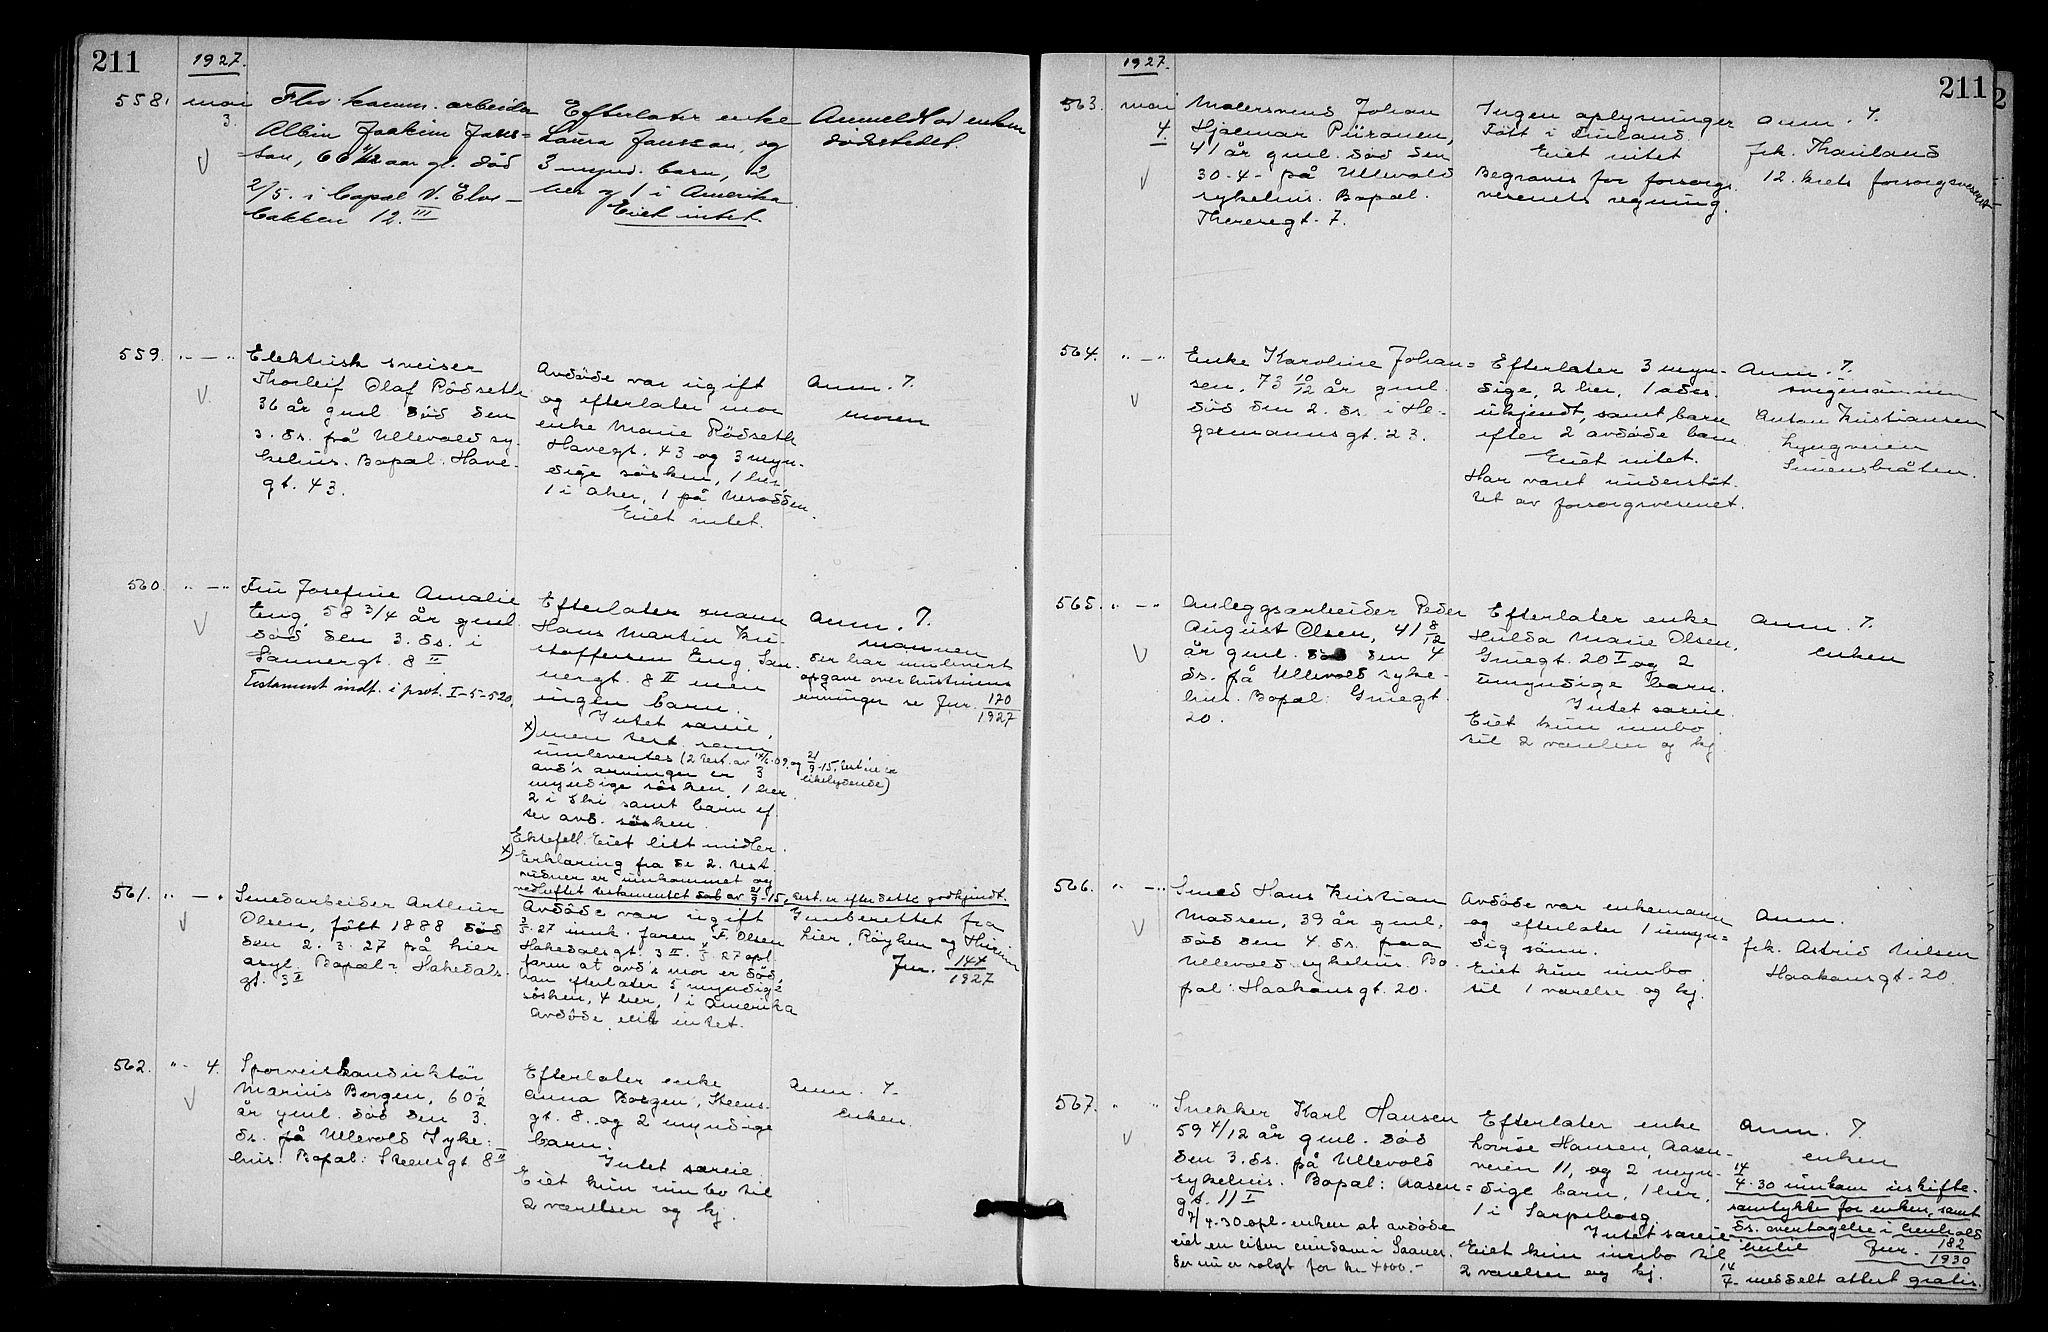 211
1927.
558. mai 3.
Flv. komm. arbeider
Albin Joakim Jans-
son, 66 aar gl. død
2/5. i bopæl N. Elve-
bakken 12.III
Efterlater enke
Laura Jansson, og
3 mynd. barn, 2
her og 1 i Amerika.
Eiet intet.
Anmeldt av enken
dødsfeldet.
559. " — "
Elektrisk sveiser
Thorleif Olaf Rödseth
36 år gml död den
3. ds. på Ullevold sy-
kehus. Bopæl: Have-
gt. 43.
Avdöde var ugift
og efterlater mor
enke Marie Rödseth
Havegt. 43 og 3 myn-
dige sösken, 1 her
1 i Aker, 1 på Nesodden.
Eiet intet.
Anm. 7.
moren
560. " — "
Fru Josefine Amalie
Eng, 58 3/4 år gml.
död den 3. ds. i
Sannergt. 8 II
Testament indt. i prot. I-5-520.
Efterlater mann
Hans Martin Kri-
stoffersen Eng, San-
nergt. 8 II men
ingen barn.
Intet særeie,
x) men test. som
innlevertes (2 test. av 09. og 21/9-15. test. er
likelydende)
avd's arvinger er 3
myndige sösken, 1 her
2 i Ski samt barn ef-
ter avd. sösken.
Ektefell. Eiet litt midler.
x) Erklæring fra de 2. test.
vidner er innkommet og
vedheftet testamentet dat av 21/9-15, test. er efter dette godkjendt.
Anm. 7.
mannen
der har innlevert
opgave over hustruens
arvinger se Jnr. 170/1927
561. " — "
Smedarbeider Arthur
Olsen, födt 1888 död
den 2. 3. 27 på hier
asyl. Bopæl: Hakedals-
gt. 3 II
Avdöde var ugift
3/5-27 innk. faren F. Olsen
Hakedalsgt. 3 II. 27 opl.
faren at avd's mor er död,
han efterlater 5 myndige
sösken, 4 her, 1 i Amerika
Avdöde eiet intet.
Innberettet fra
hier, Röyken og Hurum
Jnr. 144/1927
562. " - 4.
Sporveiskonduktör
Marius Borgen, 60 1/2
år gml. död den 3.
ds. på Ullevold Syke-
hus. Bopæl: Steensgt 8 II
Efterlater enke
Anna Borgen, Steens-
gt. 8. og 2 myndige
barn.
Intet særeie.
Eiet kun innbo til
2 værelser og kj.
Anm. 7.
enken.
211
1927.
563. mai 4.
Malersvend Johan
Hjalmar Piiranen,
41 år gml. död den
30-4- på Ullevold
sykehus. Bopæl.
Theresegt. 7.
Ingen oplysninger
Födt i Finland.
Eiet intet
Begraves for forsorgs-
vesenets regning.
Anm. 7.
frk. Thauland
12. krets forsorgsvesenet
564. " — "
Enke Karoline Johan-
sen, 73 10/12 år gml.
död den 2. ds. i He-
germannsgt. 23.
Efterlater 3 myn-
dige, 2 her, 1 adr.
ukjendt, samt barn
efter 2 avdöde barn
Eiet intet.
Har været understöt-
tet av forsorgsvesenet.
Anm. 7.
svigersönnen
Anton Kristiansen
Lyngveien
Simensbråten.
565. " — "
Anleggsarbeider Peder
August Olsen, 41 8/12
år gml. död den 4
ds. på Ullevold syke-
hus. Bopæl: Gruegt.
20.
Efterlater enke
Hulda Marie Olsen,
Gruegt. 20 I og 2
umyndige barn.
Intet særeie.
Eiet kun innbo
til 2 værelser og kj.
Anm. 7.
enken
566. " — "
Smed Hans Kristian
Madsen, 39 år gml.
död den 4. ds. paa
Ullevold sykehus. Bo-
pæl: Haakonsgt. 20.
Avdöde var enkemann
og efterlater 1 umyn-
dig sönn.
Eiet kun innbo
til 1 værelse og kj.
Anm.
frk. Astrid Nilsen
Haakonsgt. 20.
567. " "
Snekker Karl Hansen
59 4/12 år gml. död
den 3. ds. på Ullevold
sykehus. Bopæl: Aasen-
gt. 11 I
7/4-30 opl. enken at avdöde
eiet en liten eiendom i Saaner.
der nu er solgt for kr 4000.-
Efterlater enke
Lovise Hansen, Aasen-
veien 11, og 2 myn-
dige barn, 1 her,
1 i Sarpsborg
Intet særeie
Eiet kun innbo til
2 værelser og kj.
Anm. 7.
enken
14/4-30 innkom uskifte-
samtykke for enken, samt
ds. overtagelse i henhold
hertil Jnr. 182/1930
14/7 meddelt attest gratis.